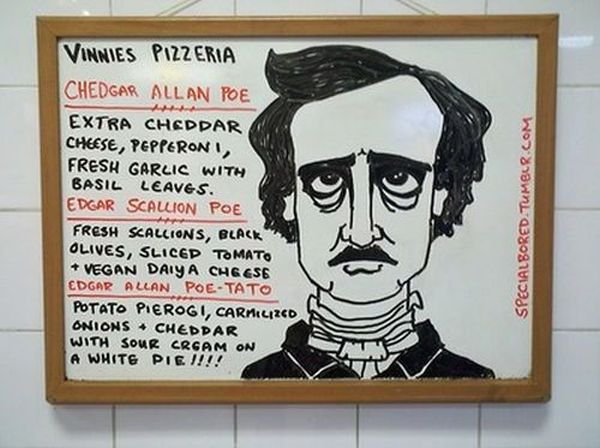 VINNIES PIZZERIA
CHEDGAR ALLAN POE
EXTRA CHEDDAR
CHEESE, PEPPERONI,
FRESH GARLIC WITH
BASIL LEAVES.
EDGAR SCALLION POE
FRESH SCALLIONS, BLACK
OLIVES, SLICED TOMATO
+ VEGAN DAIYA CHEESE
EDGAR ALLAN POE-TATO
POTATO PIEROGI, CARMILIZED
ONIONS + CHEDDAR
WITH SOUR CREAM ON
A WHITE PIE!!!!
SPECIALBORED.TUMBLR.COM